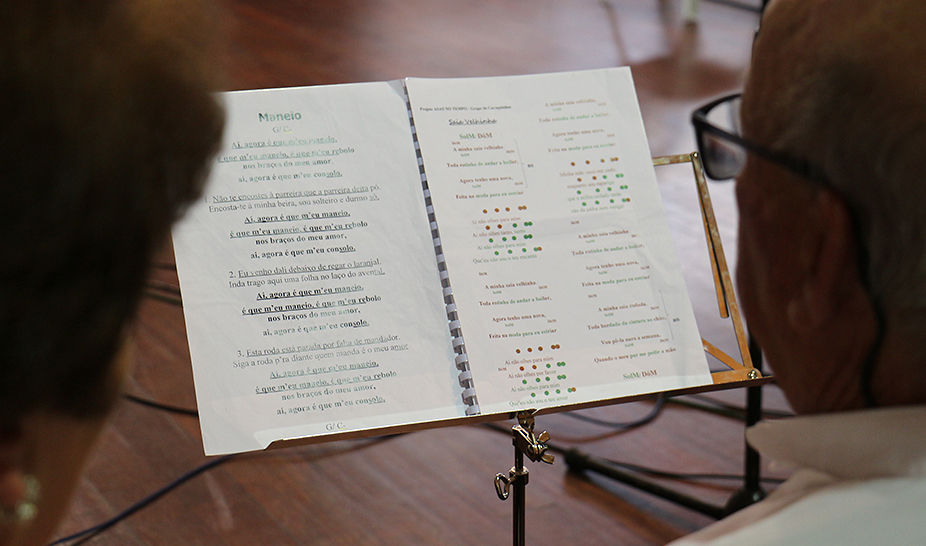 Maneio
G/ C-
Ai, agora é que m'eu maneio,
é que m'eu maneio, é que m'eu rebolo
nos braços do meu amor,
ai, agora é que m'eu consolo.
1. Não te encostes à parreira que a parreira deita pó.
Encosta-te à minha beira, sou solteiro e durmo só.
Ai, agora é que m'eu maneio,
é que m'eu maneio, é que m'eu rebolo
nos braços do meu amor,
ai, agora é que m'eu consolo.
2. Eu venho dali debaixo de regar o laranjal.
Inda trago aqui uma folha no laço do avental.
Ai, agora é que m'eu maneio,
é que m'eu maneio, é que m'eu rebolo
nos braços do meu amor,
ai, agora é que m'eu consolo.
3. Esta roda está parada por falta de mandador.
Siga a roda p'ra diante quem manda é o meu amor
Ai, agora é que m'eu maneio,
é que m'eu maneio, é que m'eu rebolo
nos braços do meu amor,
ai, agora é que m'eu consolo.
G/ C-
Saia Velhinha
SolM: DóM
A minha saia velhinha
Toda rotinha de andar a bailar,
Agora tenho uma nova,
Feita na moda para eu estriar
Ai não olhes para mim
Ai não olhes tanto, tanto
Ai não olhes para mim
Que eu não sou o teu encanto
A minha saia velhinha
Toda rotinha de andar a bailar,
Agora tenho uma nova,
Feita na moda para eu estriar
Ai não olhes para mim
Ai não olhes por favor
Ai não olhes para mim
Que eu não sou o teu amor
A minha saia velhinha
Toda rotinha de andar a bailar,
Agora tenho uma nova,
Feita na moda para eu estriar
A minha saia velhinha
Toda rotinha de andar a bailar,
Agora tenho uma nova,
Feita na moda para eu estriar
A minha saia rodada,
Toda bordada da cintura ao chão,
Vou pô-la para a semana,
Quando o meu par me pedir a mão
SolM: DóM